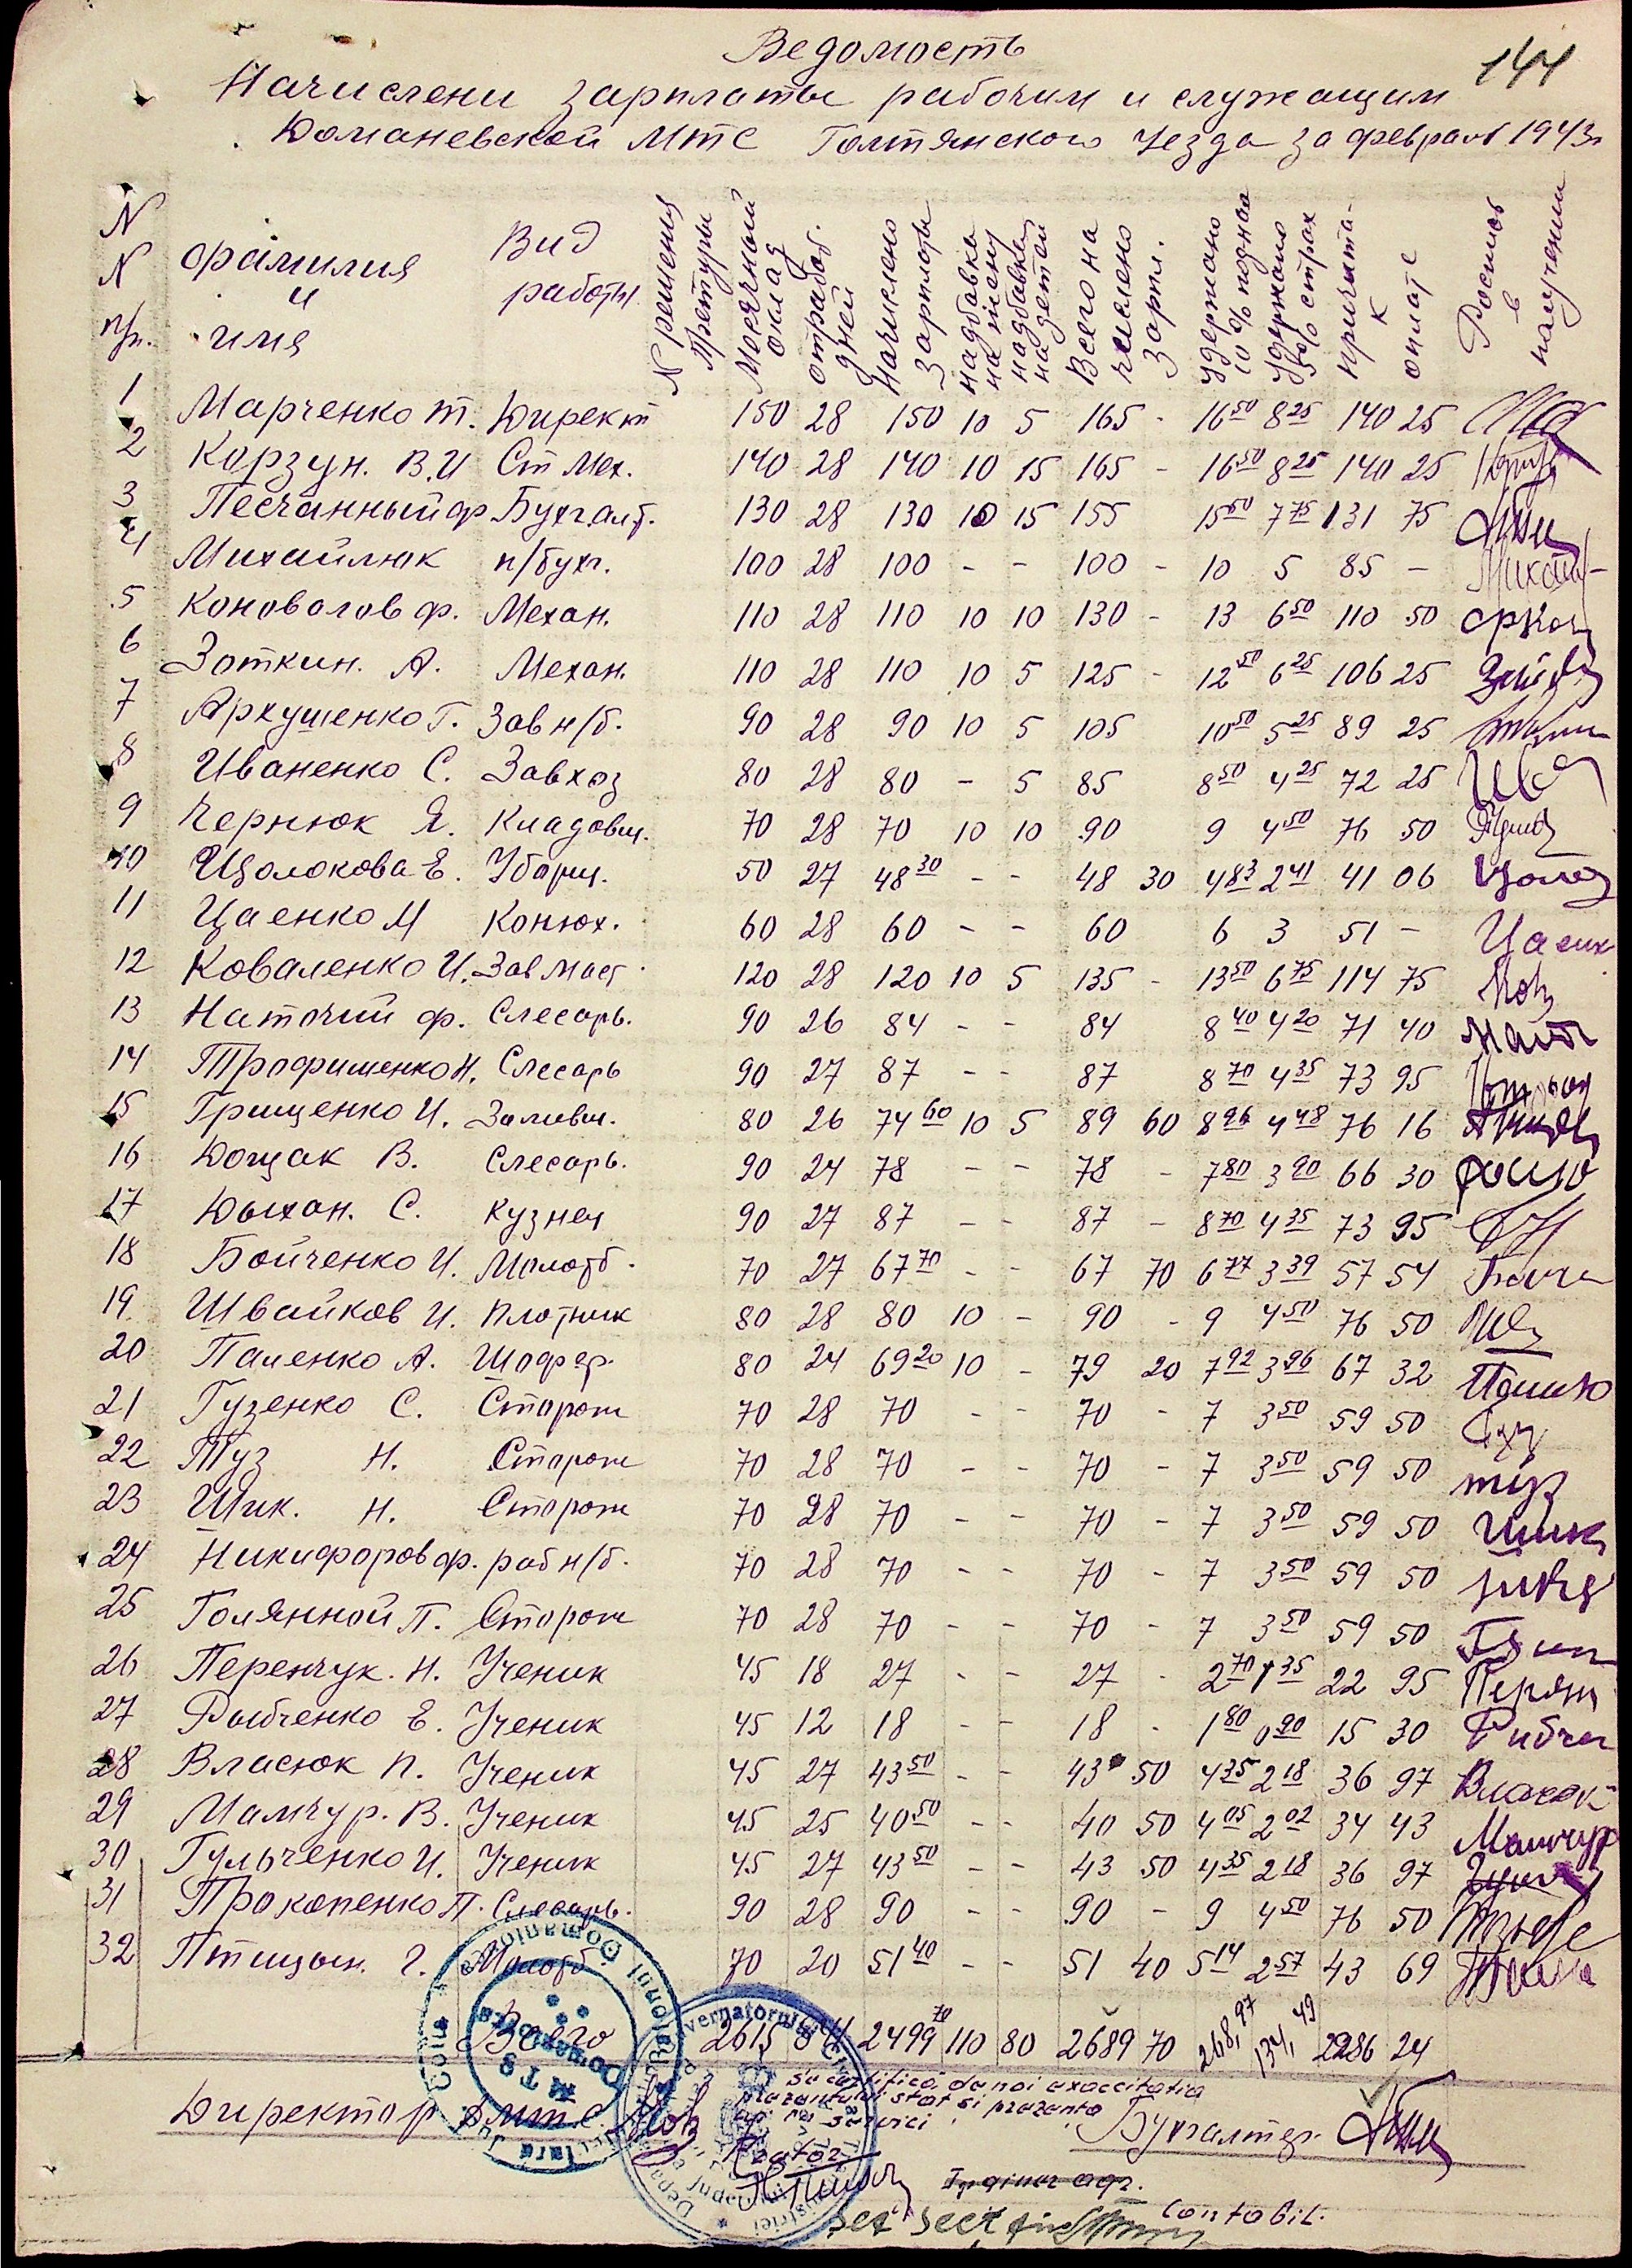 Ведомость
144
Начислени зарплаты рабочим и служащим
Доманевской МТС Голтянского Уезда за февраль 1943г
N N п/п. фамилия и имя Вид работы N решения Претуры Месячный оклад отработ. дней Начислено зарплаты надбавка на жену надбавка на детей Всего начислено зарпл. Удержано 10% подоход Удержано 5% страх причита- к оплате Роспись в получении
1 Марченко Т. Директ 150 28 150 10 5 165 - 16 50 8 25 140 25
2 Корзун. В.И Ст Мех. 140 28 140 10 15 165 - 16 50 8 25 140 25
3 Песчанный ф Бухгалт. 130 28 130 10 15 155 15 50 7 75 131 75
4 Михайлюк п/бухг. 100 28 100 - - 100 - 10 5 85 -
5 Коновалов ф. Механ. 110 28 110 10 10 130 - 13 6 50 110 50
6 Зоткин. А. Механ. 110 28 110 10 5 125 - 12 50 6 25 106 25
7 Архушенко Г. Зав н/б. 90 28 90 10 5 105 10 50 5 25 89 25
8 Иваненко С. Завхоз 80 28 80 - 5 85 8 50 4 25 72 25
9 Чернюк Я. Кладовщ. 70 28 70 10 10 90 9 4 50 76 50
10 Щолокова Е. Уборщ. 50 27 48 30 - - 48 30 4 83 2 41 41 06
11 Цаенко М Конюх. 60 28 60 - - 60 6 3 51 -
12 Коваленко И. Зав Маст 120 28 120 10 5 135 - 13 50 6 75 114 75
13 Наточий ф. Слесарь. 90 26 84 - - 84 8 40 4 20 71 40
14 Трофименко Н. Слесарь 90 27 87 - - 87 8 70 4 35 73 95
15 Грищенко И. Заливщ. 80 26 74 60 10 5 89 60 8 96 4 48 76 16
16 Дощак В. Слесарь. 90 24 78 - - 78 - 7 80 3 90 66 30
17 Дыхан. С. Кузнец 90 27 87 - - 87 - 8 70 4 35 73 95
18 Бойченко И. Молотб. 70 27 67 70 - - 67 70 6 77 3 39 57 54
19 Швайков И. Плотник 80 28 80 10 - 90 - 9 4 50 76 50
20 Паленко А. Шофер. 80 24 69 20 10 - 79 20 7 92 3 96 67 32
21 Гузенко С. Сторож 70 28 70 - - 70 - 7 3 50 59 50
22 Туз Н. Сторож 70 28 70 - - 70 - 7 3 50 59 50 туз
23 Шик. Н. Сторож 70 28 70 - - 70 - 7 3 50 59 50 Шик
24 Никифоров ф. раб н/б. 70 28 70 - - 70 - 7 3 50 59 50
25 Голянной П. Сторож 70 28 70 - - 70 - 7 3 50 59 50
26 Перенчук. Н. Ученик 45 18 27 - - 27 - 2 70 1 35 22 95
27 Рыбченко Е. Ученик 45 12 18 - - 18 - 1 80 0 90 15 30
28 Власюк П. Ученик 45 27 43 50 - - 43 50 4 35 2 18 36 97
29 Мамчур. В. Ученик 45 25 40 50 - - 40 50 4 05 2 02 34 43 Мамчур
30 Гульченко И. Ученик 45 27 43 50 - - 43 50 4 35 2 18 36 97
31 Прокопенко П. Слесарь. 90 28 90 - - 90 - 9 4 50 76 50
32 Птицын. Г. Молотб 70 20 51 40 - - 51 40 5 14 2 57 43 69
Всего 2615 2499 70 110 80 2689 70 268,97 134,49 2286 24
Se certifică de noi exactitatea
prezentului stat si prezenta
Директор МТС
Бухгалтер.
Pretor
Inginer agr.
Contabil.